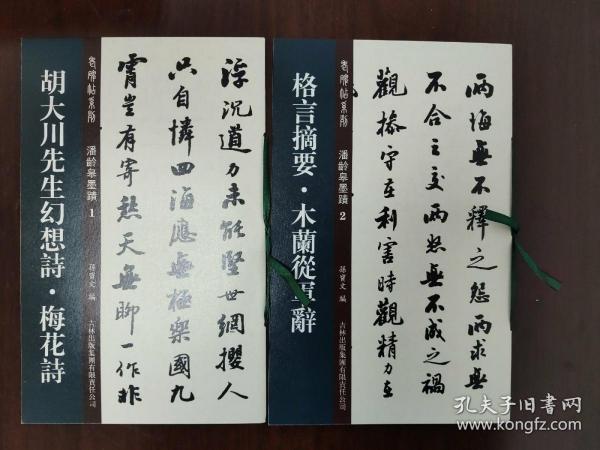 浮沉道力未能堅世網攖人
只自憐四海應無極樂國九
霄豈有寄愁天無聊一作非
老碑帖系列
潘齡皋墨蹟 1
孫寶文 編
吉林出版集團有限責任公司
胡大川先生幻想詩·梅花詩
兩悔無不釋之怨兩求無
不合之交兩怒無不成之禍
觀操守在利害時觀精力在
老碑帖系列
潘齡皋墨蹟 2
孫寶文 編
吉林出版集團有限責任公司
格言摘要·木蘭從軍辭
孔夫子旧书网